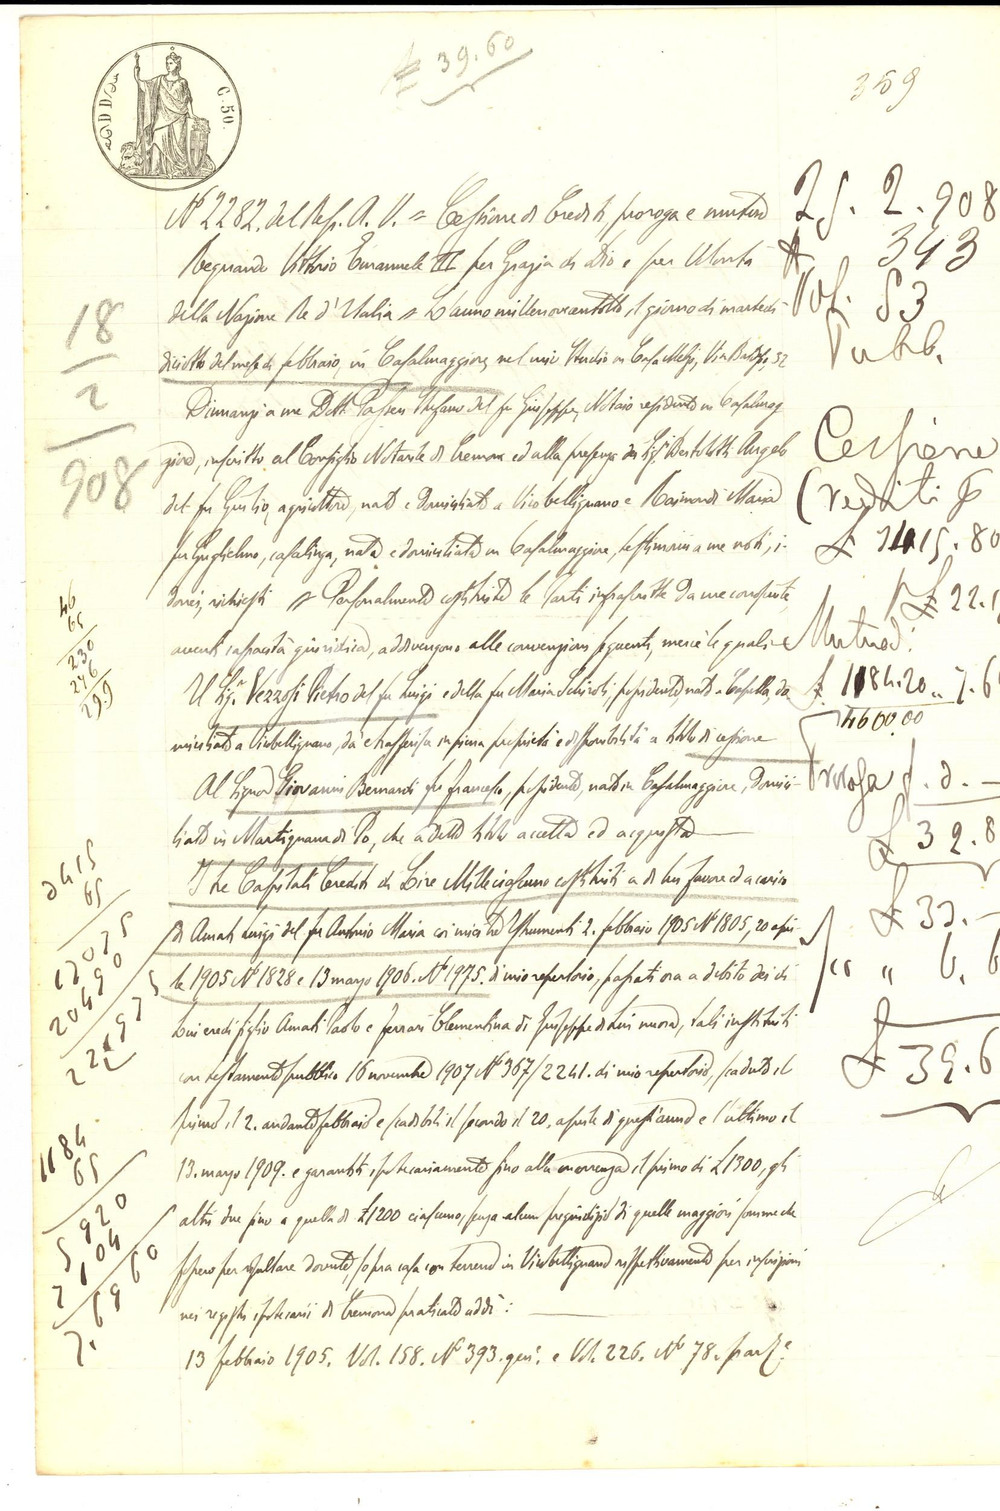 £ 39.60
359
C. 50.
N° 2282. del Rep. A. V. = Cessione di Crediti, proroga e mutuo
Regnando Vittorio Emanuele III per Grazia di Dio e per Volontà
della Nazione Re d'Italia = L'anno millenovecentotto, il giorno di martedì
diciotto del mese di febbraio, in Casalmaggiore, nel mio Studio in Casa Melzi, Via 52
Dinnanzi a me Dott. Stefano del fu Giuseppe, Notaio residente in Casalmag-
giore, inscritto al Consiglio Notarile di Cremona ed alla presenza dei Sig.i Bertoletti Angelo
del fu Giulio, agricoltore, nato e domiciliato a Vicobellignano e Raimondi Maria
fu Guglielmo, casalinga, nata e domiciliata in Casalmaggiore, testimoni a me noti, i-
donei, richiesti = Personalmente costituite le Parti infrascritte da me conosciute,
aventi capacità giuridica, addivengono alle convenzioni seguenti, mercè le quali =
Il Sig.r Vezzosi Pietro del fu Luigi e della fu Maria Schiroli, possidente, nato a Casella, do-
miciliato a Vicobellignano, dà e trasferisce in piena proprietà e disponibilità a titolo di cessione
Al Signor Giovanni Bernardi fu Francesco, possidente, nato in Casalmaggiore, domici-
liato in Martignana di Po, che a detto titolo accetta ed acquista
I tre Capitali Crediti di Lire Mille ciascuno costituiti a di lui favore ed a carico
di Amati Luigi del fu Antonio Maria coi miei tre Istrumenti 2. febbraio 1905 N° 1805, 20 apri-
le 1905 N° 1828 e 13 marzo 1906. N° 1975. di mio repertorio, passati ora a debito dei di
lui eredi figlio Amati Paolo e Ferrari Clementina di Giuseppe di lui nuora, tali instituiti
con testamento pubblico 16 novembre 1907 N° 367/2241. di mio repertorio, scaduto il
primo, il 2. andante febbraio e scadibili il secondo il 20. aprile di quest'anno e l'ultimo il
13. marzo 1909. e garantiti ipotecariamente fino alla concorrenza il primo di £ 1300, gli
altri due fino a quella di £ 1200 ciascuno, senza alcun pregiudizio di quelle maggiori somme che
fossero per risultare dovute, sopra casa con terreno in Vicobellignano rispettivamente per inscrizioni
nei registri ipotecari di Cremona praticate addì:
13 febbraio 1905. Vol. 158. N° 393. gen.e e Vol. 226. N° 78. part.e
18
2
908
46
65
230
276
299
3415
65
17075
20490
221975
1184
65
5920
7104
7.6960
2S. 2. 908
N 343
Vol. 53
Pubb.
Cessione
Crediti p
£ 3415.80
£ 22.
Mutuo di
£ 1184.20 . 7.6
4600.00
Proroga £. 3. -
£ 32.8
£ 33. -
" 6. 6
£ 39.6